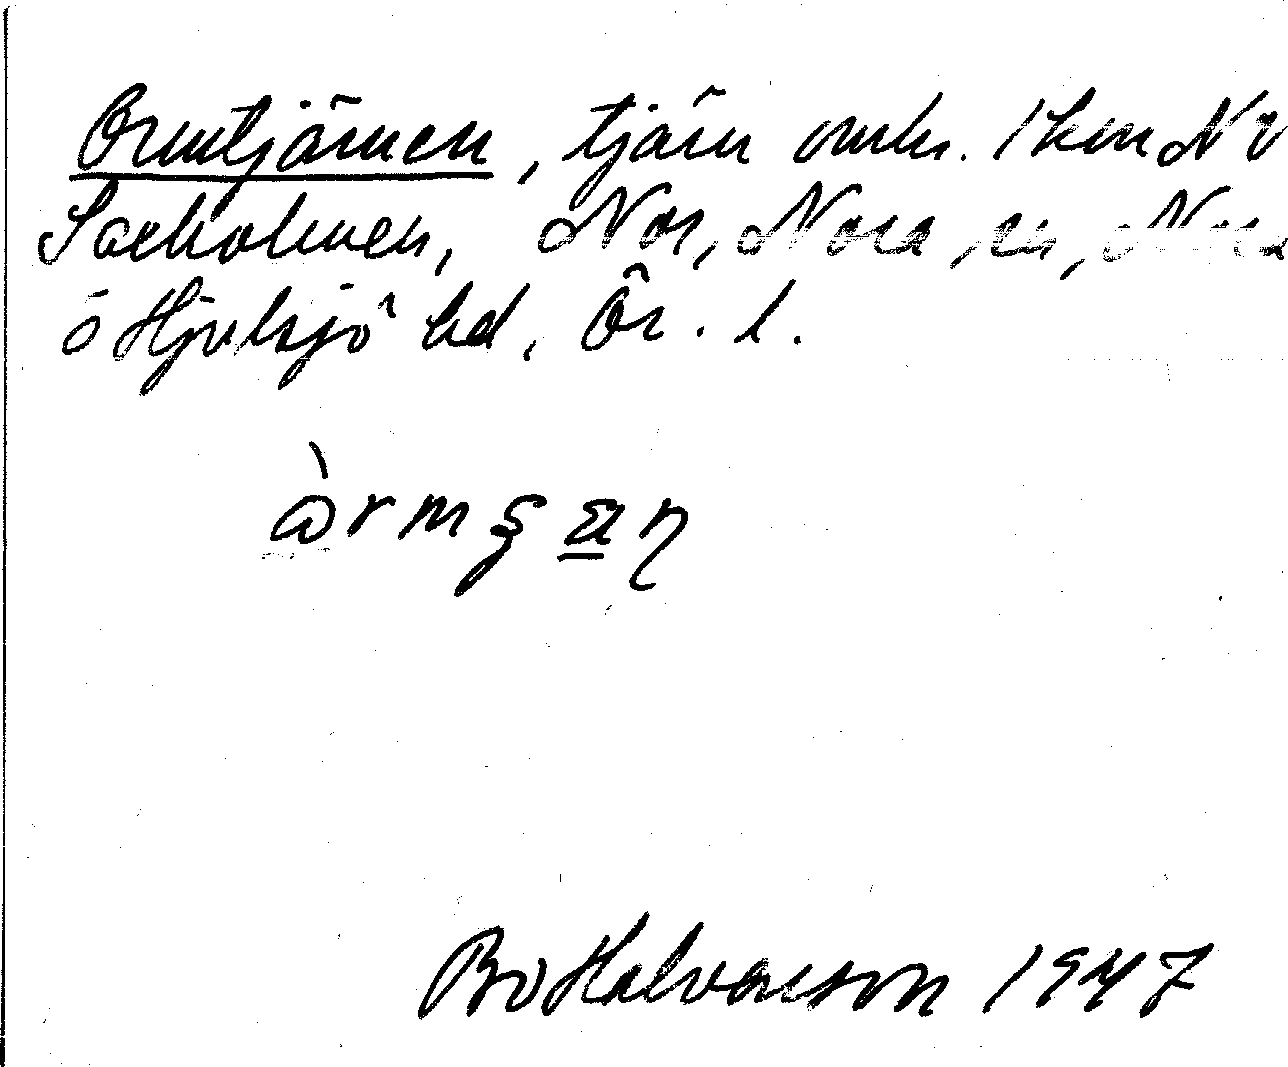 Ormtjärnen, tjärn omkr. 1 km NV
Soeholmen, Nor, Nora sn, Nora
o Hjulsjö hd, Ör. l.
Bo Halvarsson 1947